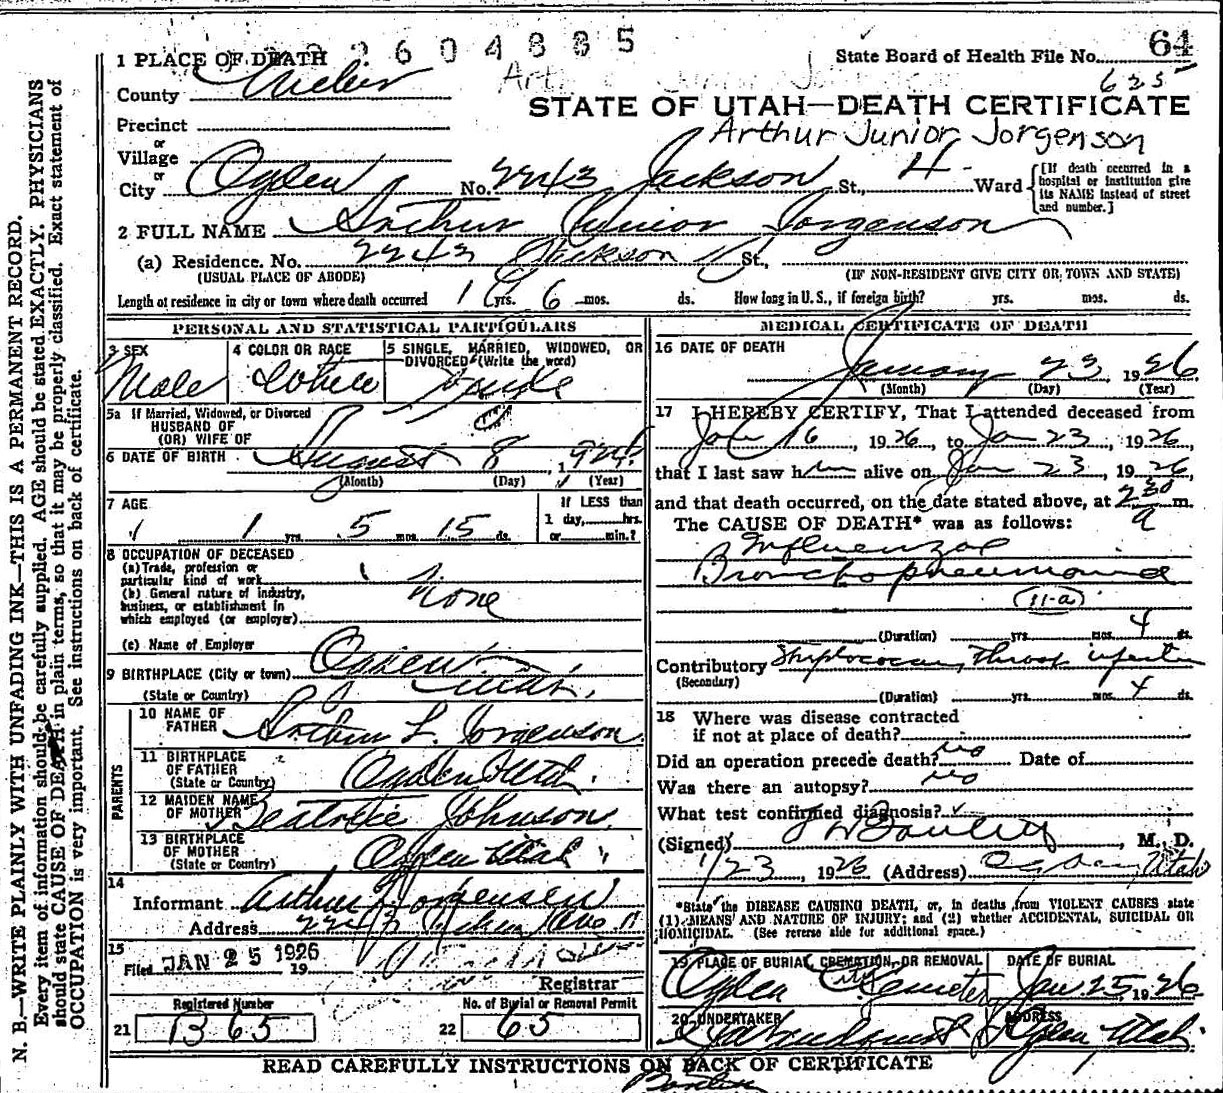 2604885
64
1 PLACE OF DEATH
State Board of Health File No.
625
County Weber
STATE OF UTAH—DEATH CERTIFICATE
Precinct
Arthur Junior Jorgenson
or
Village
or
City Ogden No. 2243 Jackson St., 4 Ward
[If death occurred in a hospital or institution give its NAME instead of street and number.]
2 FULL NAME Arthur Junior Jorgenson
(a) Residence. No. 2243 Jackson St.,
(USUAL PLACE OF ABODE) (IF NON-RESIDENT GIVE CITY OR TOWN AND STATE)
Length of residence in city or town where death occurred 1 yrs. 6 mos. ds. How long in U.S., if foreign birth? yrs. mos. ds.
PERSONAL AND STATISTICAL PARTICULARS
3 SEX
Male
4 COLOR OR RACE
White
5 SINGLE, MARRIED, WIDOWED, OR DIVORCED (Write the word)
Single
5a If Married, Widowed, or Divorced
HUSBAND OF
(OR) WIFE OF
6 DATE OF BIRTH August 8, 1924
(Month) (Day) (Year)
7 AGE
1 yrs. 5 mos. 15 ds.
If LESS than
1 day, hrs.
or min.?
8 OCCUPATION OF DECEASED
(a) Trade, profession or
particular kind of work
(b) General nature of industry,
business, or establishment in
which employed (or employer)
None
(c) Name of Employer
9 BIRTHPLACE (City or town) Ogden
(State or Country) Utah.
PARENTS
10 NAME OF
FATHER Arthur L. Jorgenson
11 BIRTHPLACE
OF FATHER
(State or Country) Ogden Utah.
12 MAIDEN NAME
OF MOTHER Beatrice Johnson
13 BIRTHPLACE
OF MOTHER
(State or Country) Ogden Utah
14
Informant Arthur Jorgensen
Address 2243 Ave
15
Filed JAN 25 1926 19
Registrar
Registered Number
21 B65
No. of Burial or Removal Permit
22 65
MEDICAL CERTIFICATE OF DEATH
16 DATE OF DEATH
January 23 1926
(Month) (Day) (Year)
17 I HEREBY CERTIFY, That I attended deceased from
Jan 16, 1926, to Jan 23, 1926,
that I last saw him alive on Jan 23, 1926,
and that death occurred, on the date stated above, at 230 m.
a
The CAUSE OF DEATH* was as follows:
Influenzal
Bronchopneumonia
(11-a)
(Duration) yrs. mos. 4 ds.
Contributory Streptococcus Throat infection
(Secondary)
(Duration) yrs. mos. 4 ds.
18 Where was disease contracted
if not at place of death?
Did an operation precede death? no Date of
Was there an autopsy? no
What test confirmed diagnosis?
(Signed) M. D.
1/23, 1926 (Address) Ogden, Utah
*State the DISEASE CAUSING DEATH, or, in deaths from VIOLENT CAUSES state
(1) MEANS AND NATURE OF INJURY; and (2) whether ACCIDENTAL, SUICIDAL OR
HOMICIDAL. (See reverse side for additional space.)
19 PLACE OF BURIAL, CREMATION, OR REMOVAL
Ogden City Cemetery
DATE OF BURIAL
Jan 25, 1926
20 UNDERTAKER
ADDRESS
Ogden, Utah
READ CAREFULLY INSTRUCTIONS ON BACK OF CERTIFICATE
N. B.—WRITE PLAINLY WITH UNFADING INK—THIS IS A PERMANENT RECORD.
Every item of information should be carefully supplied. AGE should be stated EXACTLY. PHYSICIANS
should state CAUSE OF DEATH in plain terms, so that it may be properly classified. Exact statement of
OCCUPATION is very important. See instructions on back of certificate.